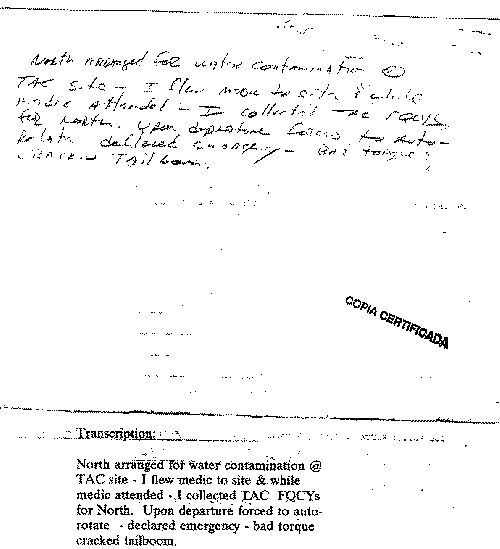 North arranged for water contamination @
TAC site - I flew medic to site & while
medic attended - I collected TAC FQCYs
for North. Upon departure forced to auto-
rotate declared emergency - bad torque;
cracked Tailboom.
COPIA CERTIFICADA
Transcription:
North arranged for water contamination @
TAC site - I flew medic to site & while
medic attended - I collected TAC FQCYs
for North. Upon departure forced to auto-
rotate - declared emergency - bad torque
cracked tailboom.